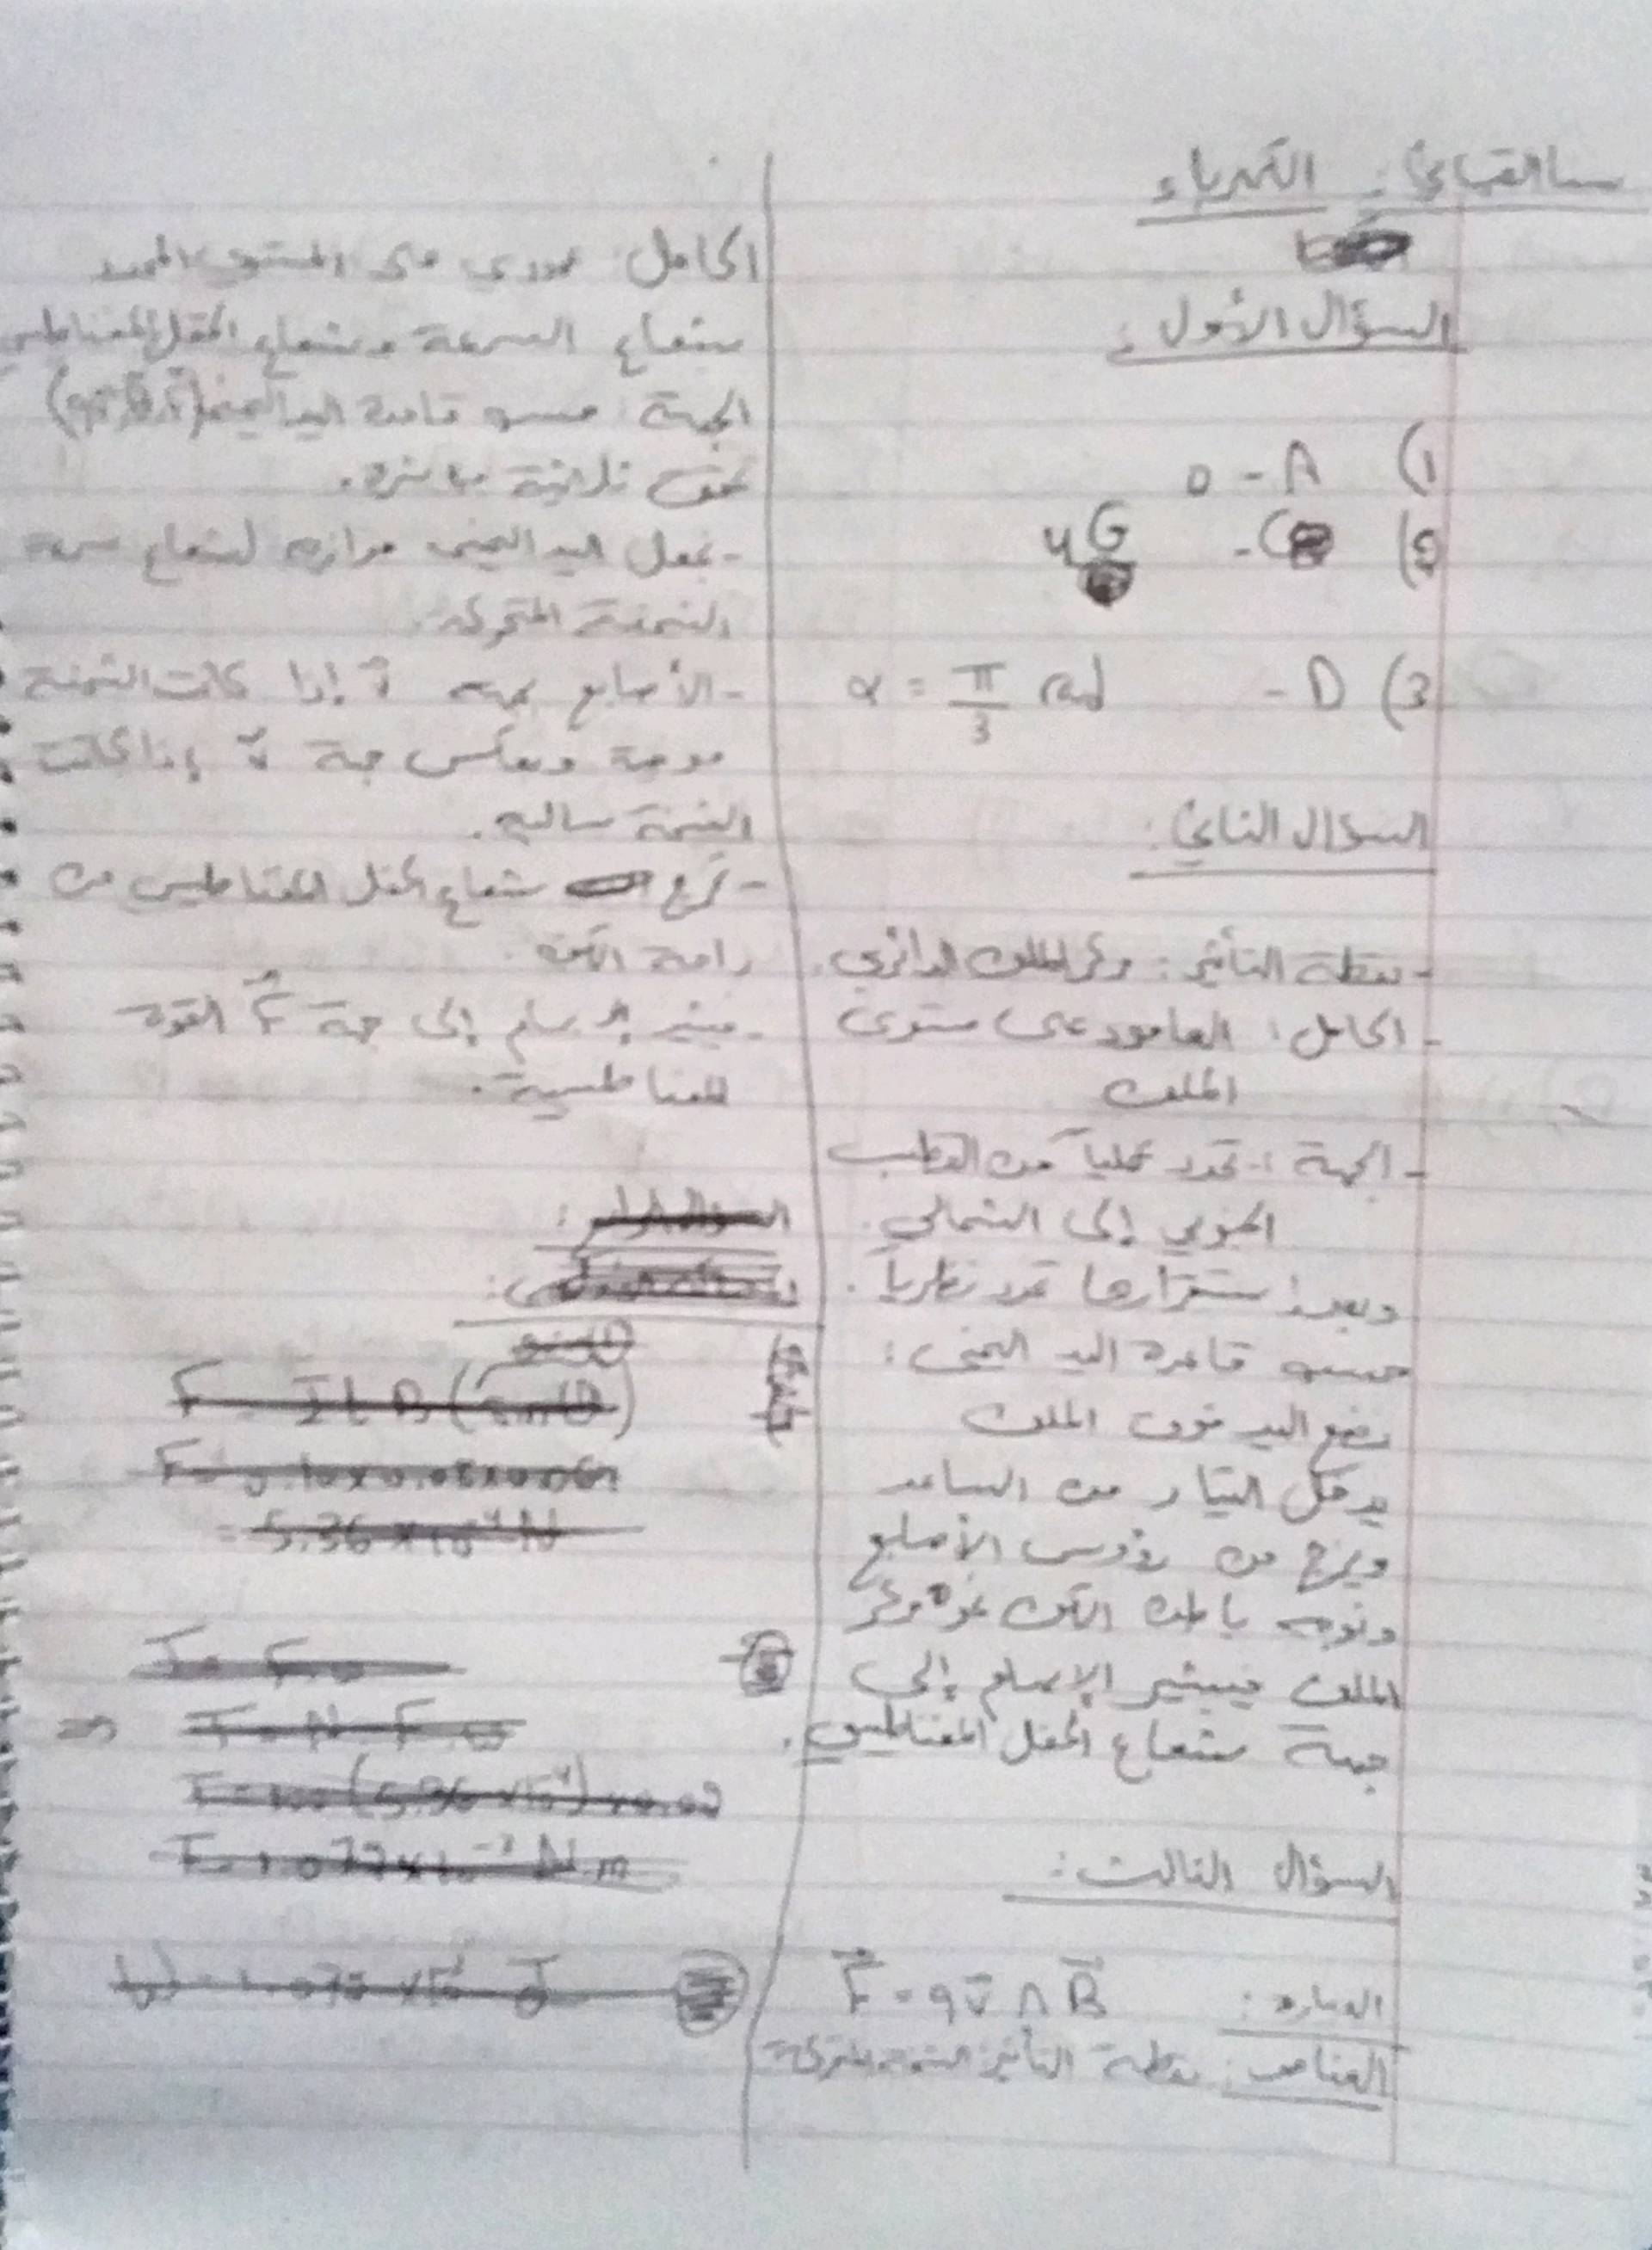 سنا القباني: الكهرباء
السؤال الأول:
1) A - 0
2) C - 4G
3) D - α = π/3 rad
السؤال الثاني:
- نقطة التأثير: مركز الملف الدائري.
- الحامل: العامود على مستوى
الملف
- الجهة: تحدد عملياً من القطب
الجنوبي إلى الشمالي.
وبعد استقرارها تحدد نظرياً.
حسب قاعدة اليد اليمنى:
نضع اليد فوق الملف
يدخل التيار من الساعد
ويخرج من رؤوس الأصابع
ونوجه باطن الكف نحو مركز
الملف فيشير الإبهام إلى
جهة شعاع الحقل المغناطيسي.
السؤال الثالث:
العبارة: F = qv ∧ B
العناصر: نقطة التأثير: الشحنة المتحركة
الحامل: عمودي على المستوي المحدد
بشعاع السرعة وشعاع الحقل المغناطيسي
الجهة: حسب قاعدة اليد اليمنى
تحقق ثلاثية مباشرة.
- نجعل اليد اليمنى موازية لشعاع سرعة
الشحنة المتحركة.
- الأصابع بجهة v إذا كانت الشحنة
موجبة وبعكس جهة v إذا كانت
الشحنة سالبة.
- يخرج شعاع الحقل المغناطيسي من
راحة الكف.
- يشير الإبهام إلى جهة F القوة
المغناطيسية.
F = I L B (sinθ)
= 5.36 × 10⁻⁴ N